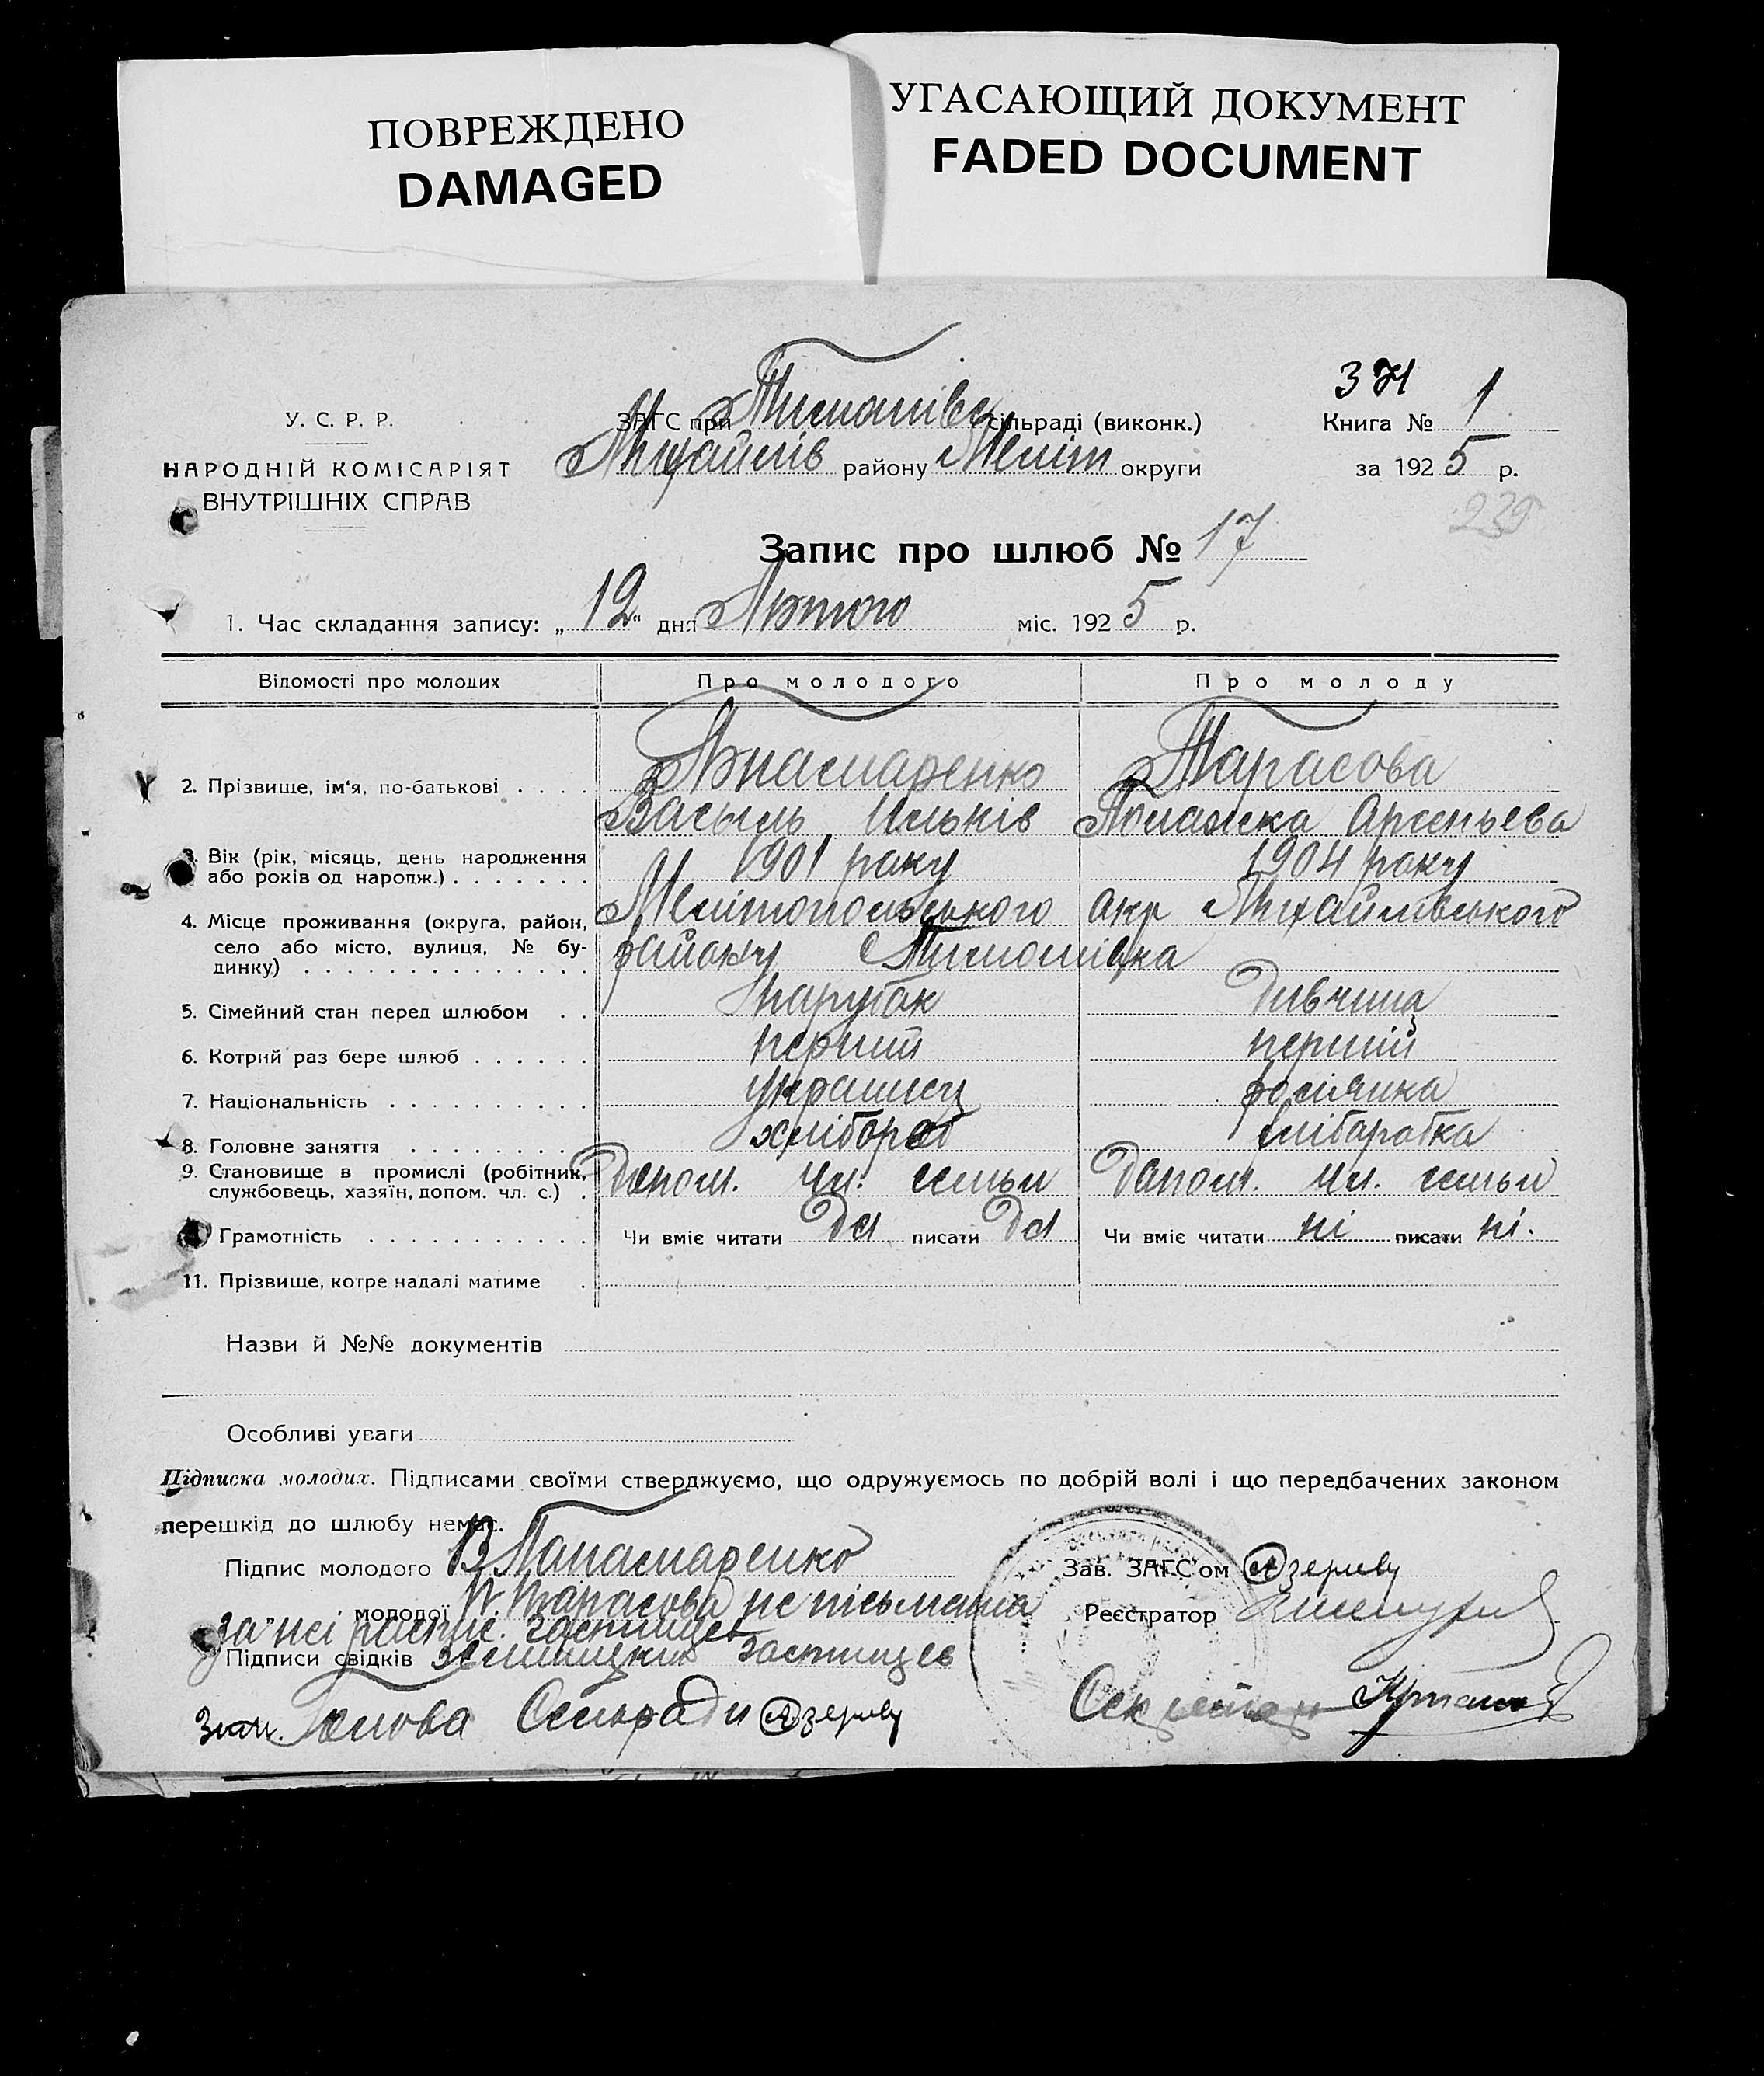 ПОВРЕЖДЕНО
DAMAGED
УГАСАЮЩИЙ ДОКУМЕНТ
FADED DOCUMENT
374 1
У. С. Р. Р. ЗАГС при Тимошівс сільраді (виконк.) Книга №
НАРОДНІЙ КОМІСАРІЯТ Михайлів району Меліт округи за 1925 р.
ВНУТРІШНІХ СПРАВ
239
Запис про шлюб № 17
1. Час складання запису: „12“ дня Лютого міс. 1925 р.
Відомості про молодих Про молодого Про молоду
2. Прізвище, ім'я, по-батькові . . . . Тарасова
Василь Ильків Арсеньева
3. Вік (рік, місяць, день народження 1901 року 1904 року
або років од народж.) . . . . . . .
4. Місце проживання (округа, район, Мелітопольського окр Михайлівського
село або місто, вулиця, № бу- району Тимошівка
динку) . . . . . . . . . . . . . .
5. Сімейний стан перед шлюбом . . парубок Дивчина
6. Котрий раз бере шлюб . . . . . . перший перший
7. Національність . . . . . . . . . . украинец росіянка
8. Головне заняття . . . . . . . . . хлібороб хліборобка
9. Становище в промислі (робітник, Допом. чл. семьи Допом. чл. семьи
службовець, хазяїн, допом. чл. с.) .
Грамотність . . . . . . . . . . . Чи вміє читати Да писати Да Чи вміє читати ні писати ні.
11. Прізвище, котре надалі матиме .
Назви й №№ документів
Особливі уваги
Підписка молодих. Підписами своїми стверджуємо, що одружуємось по добрій волі і що передбачених законом
перешкід до шлюбу немає.
Підпис молодого В Папамаренко Зав. ЗАГС'ом
молодої П Тарасова не пісьмена Реєстратор
за неї
Підписи свідків
Голова Сельради Секретар